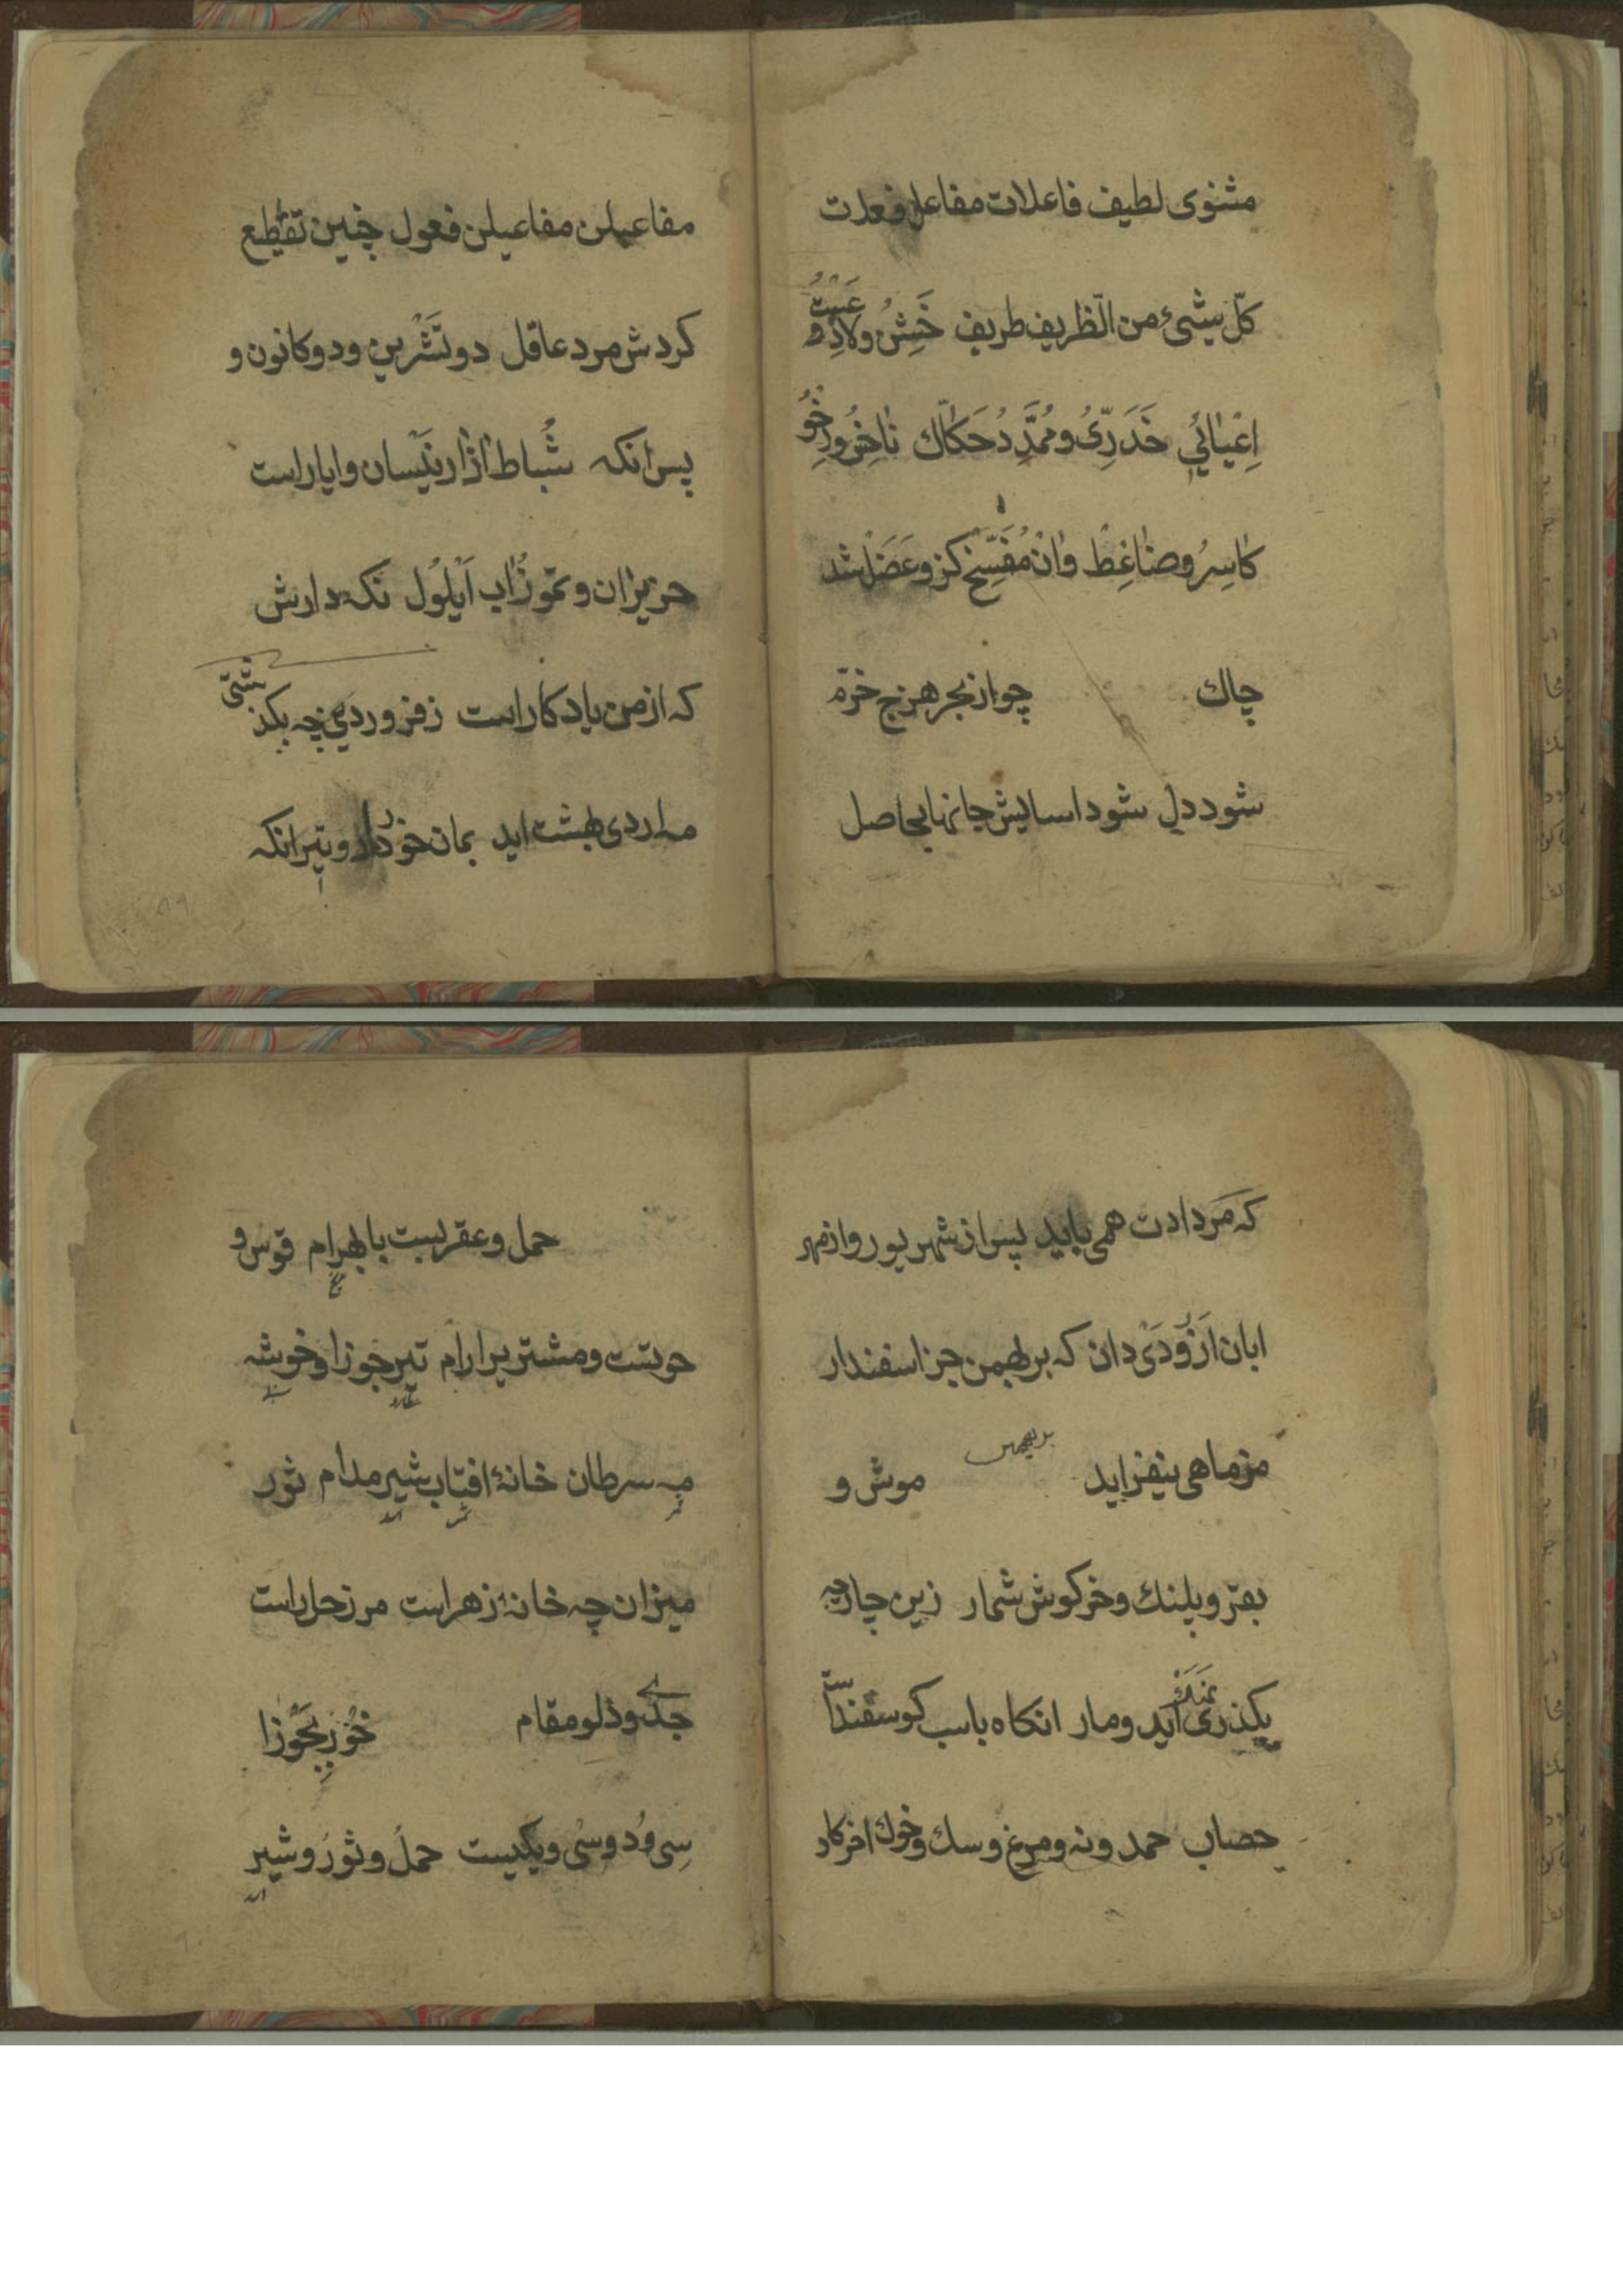 مثنوی لطیف فاعلات مفاعلن فعلات
کلّ شیئ من الّظریف طریف خَشِنُ ولاذِع
اِعْیٰائیُ خَدَرِّیُ و مُمَّدِدُ حَکّاك نٰاخِسُ و رِخْوُ
کٰاسِرُ و ضٰاغِطْ وٰانْ مُفَسِّخ کزو عَضَلْ شد
چاك چو از بحر هزج خرّم
شود دل شود اسایش جانها بحاصل
مفاعیلن مفاعیلن فعول چنین تقطیع
کردش مرد عاقل دو تَشْرین و دو کانون و
پس انکه شُباط اٰذٰار نَیْسان و ایار است
حزیرٰان و تموزُ اٰب اَیْلُول نکه دارش
که از من یاد کار است ز فروردی چه بکذشتی
مه اردی بهشت اید بمان خرداد و تیر انکه
که مرَدادت همی باید پس از شهریور و از مهر
ابان اَزَرُو دَیْ دان که بر بهمن جز اسفندار
مز ماهی نیفزاید موش و
بربهمن
بقر و پلنك و خرکوش شمار زین چار چه
بکذری نَهَنك اید و مار انکاه باسب کوسفند است
حصاب حمدونه و مرغ و سك و خوك اخر کار
حمل و عقربست با بهرام قوس و
حوتست و مشتریرا رام تیر جوزا و خوشه
عطارد سنبله
مه سرطان خانهٔ افتاب شیر مدام ثور
قمر شمس اسد
میزان چه خانهٔ زهراست مر زحل راست
جدی و دلو مقام خُورِ بَجُوْزٰا
سِی و دُو و سُی و یکیست حملُ و ثورُ و شیر
اسد